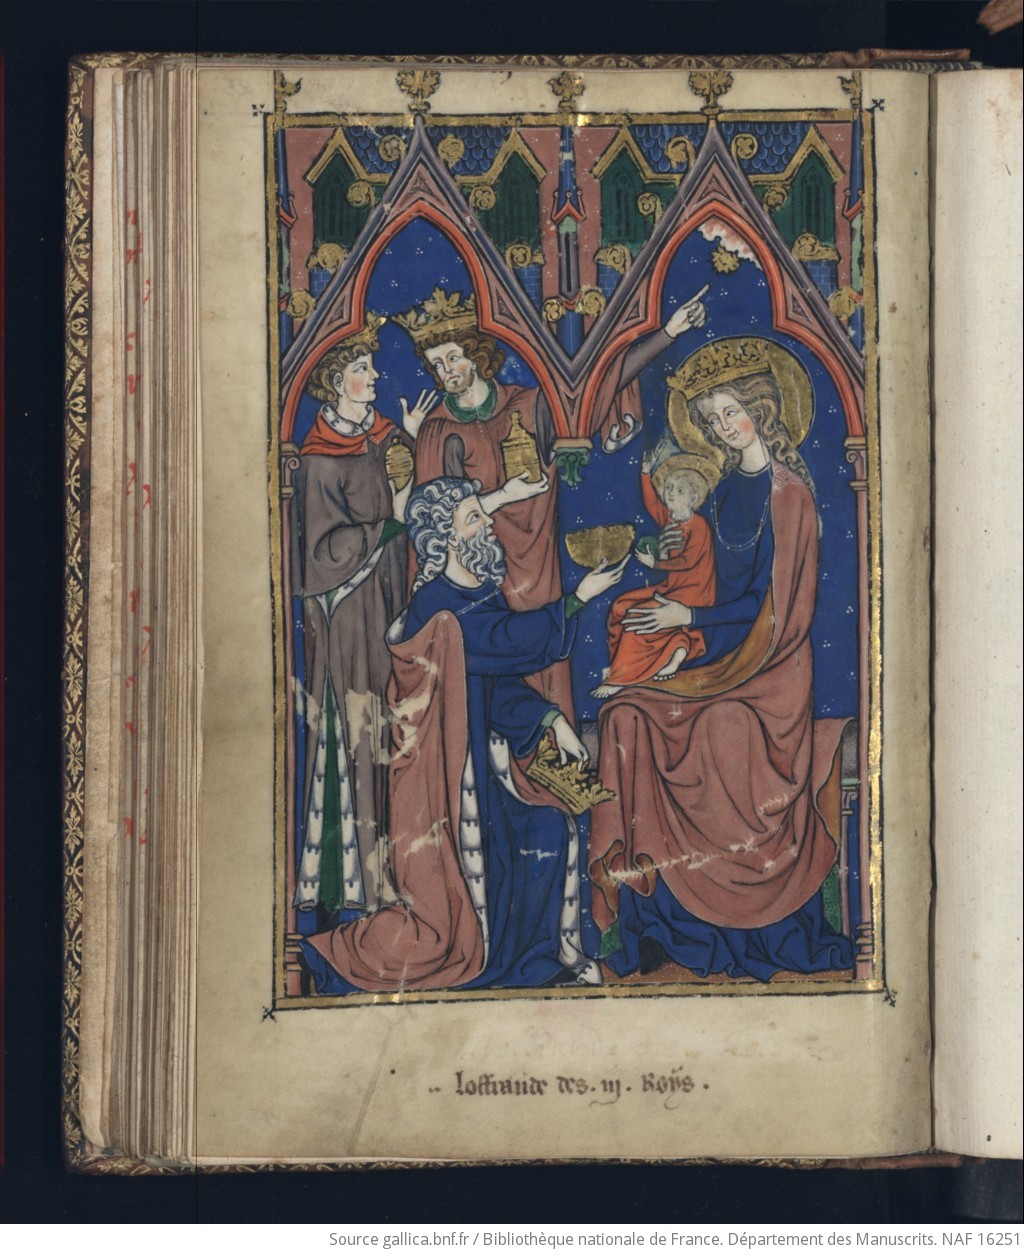 .. loffrande des .iij. Roys .
Source gallica.bnf.fr / Bibliothèque nationale de France. Département des Manuscrits. NAF 16251